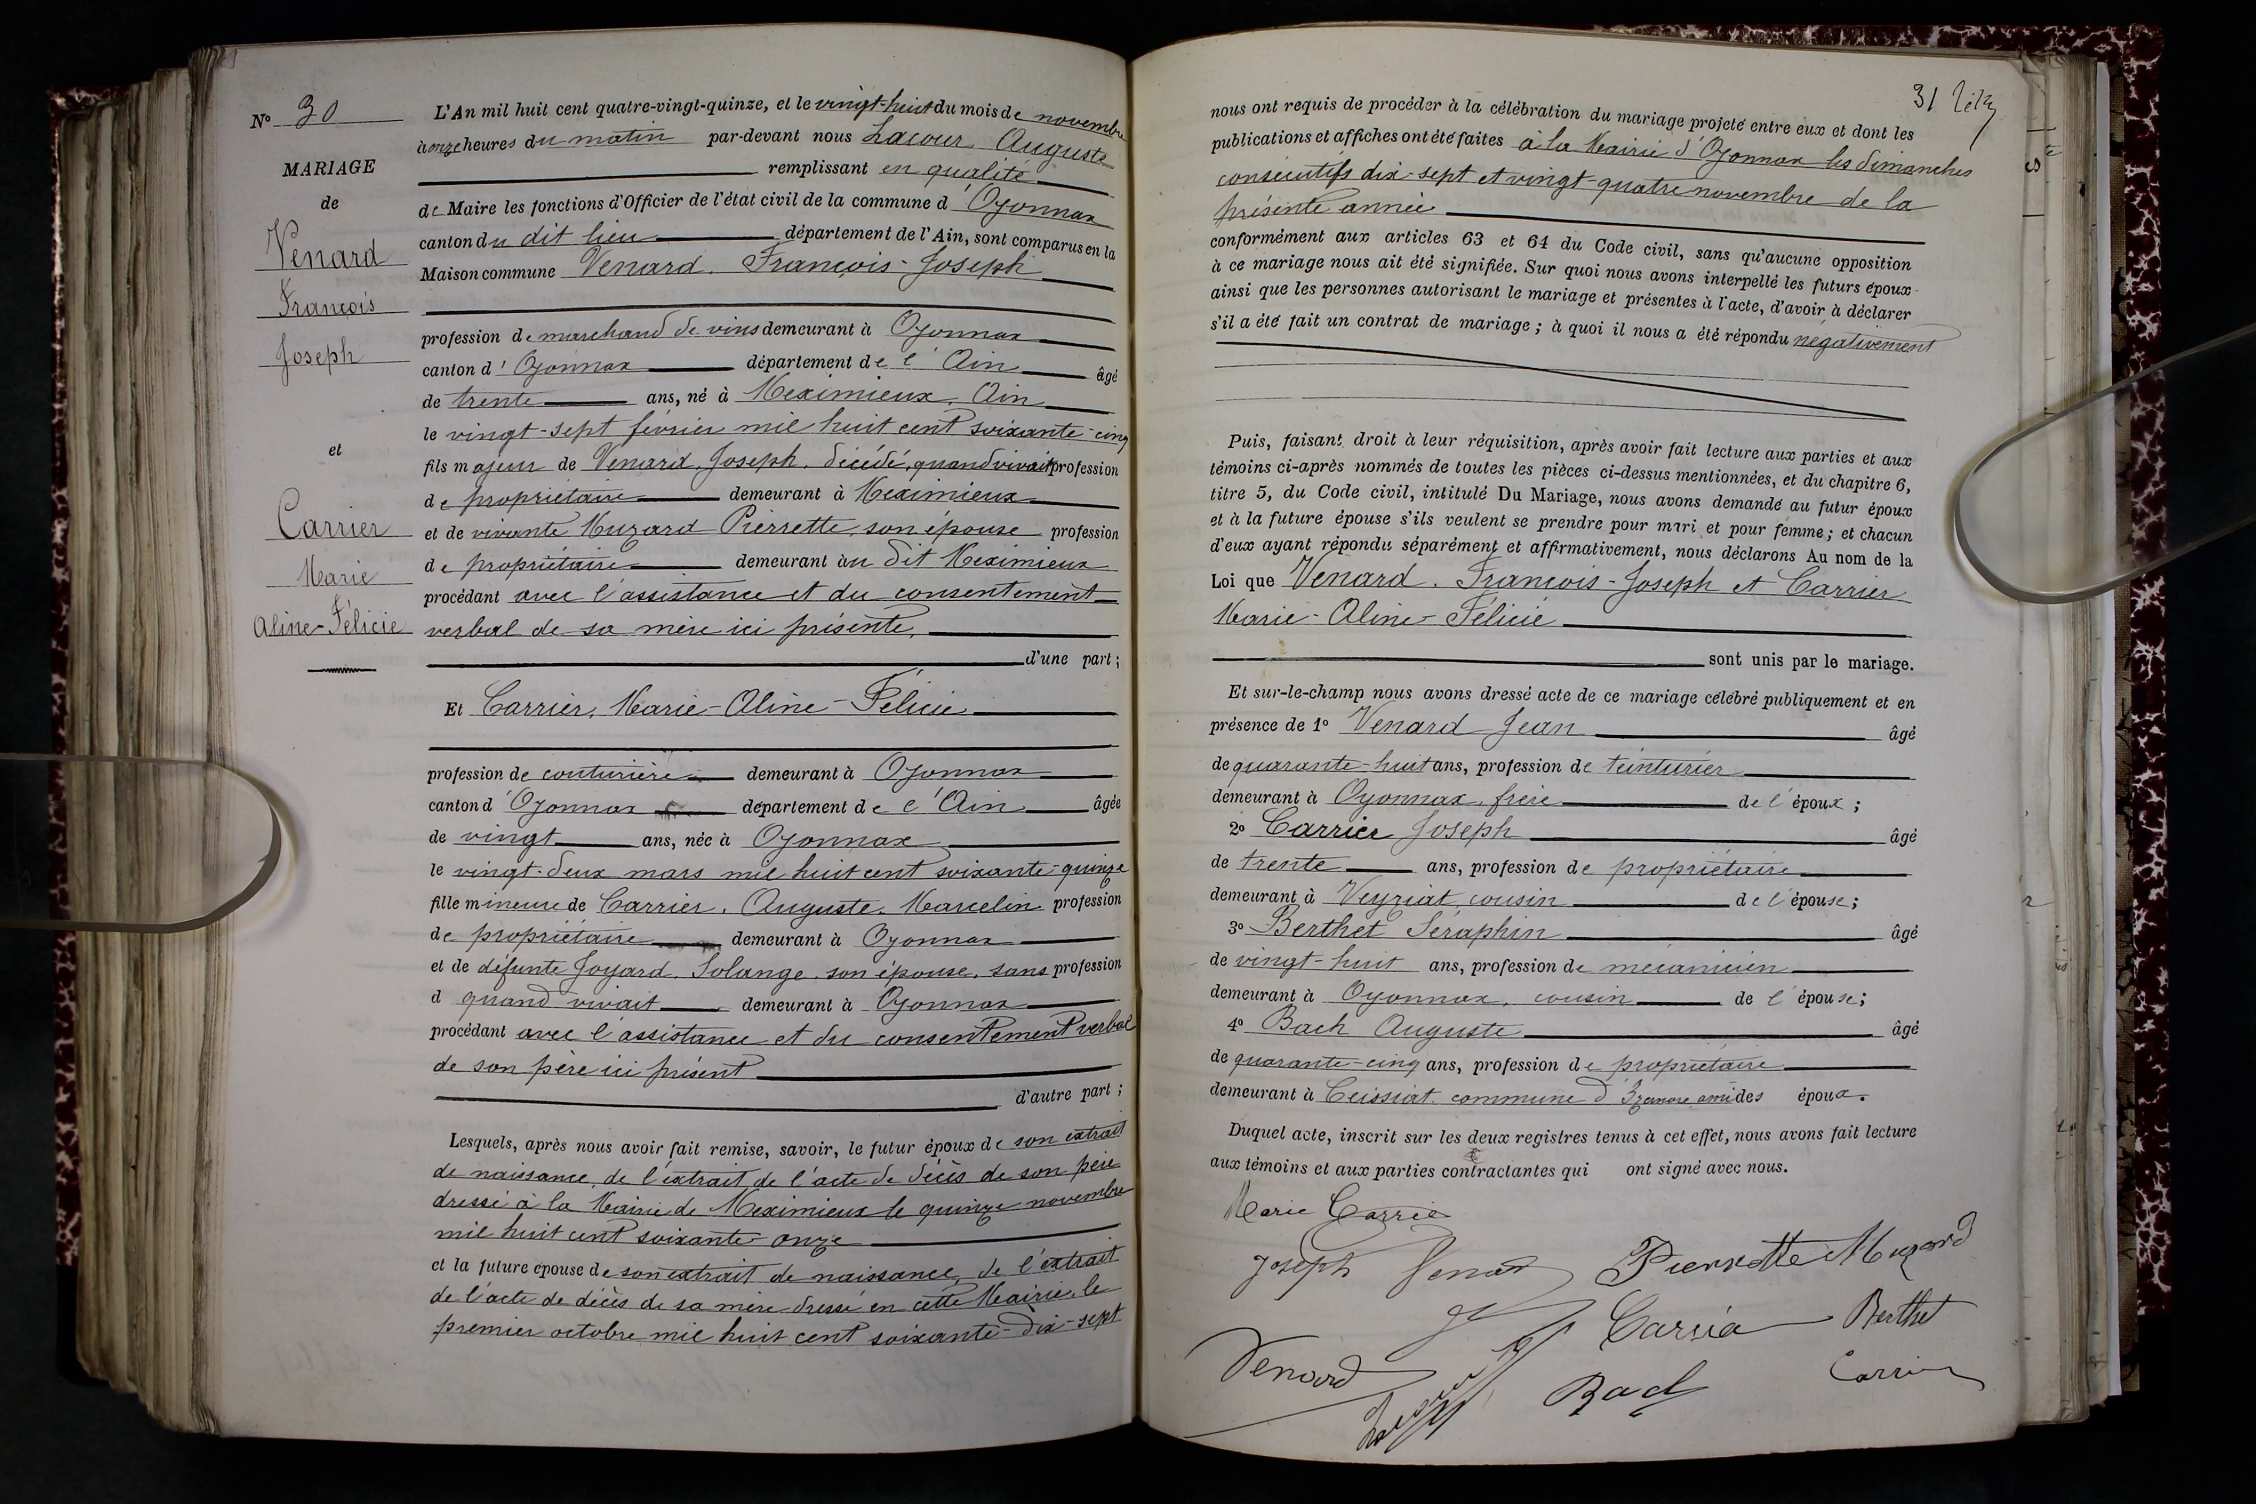 N° 30
MARIAGE
de
Venard
François
Joseph
et
Carrier
Marie
Aline-Félicie
L'An mil huit cent quatre-vingt-quinze, et le vingt-huit du mois de novembre
à onze heures du matin par-devant nous Lacour Auguste
remplissant en qualité
de Maire les fonctions d'Officier de l'état civil de la commune d'Oyonnax
canton du dit lieu département de l'Ain, sont comparus en la
Maison commune Venard. François-Joseph
profession de marchand de vins demeurant à Oyonnax
canton d'Oyonnax département de l'Ain âgé
de trente ans, né à Meximieux, Ain
le vingt-sept février mil huit cent soixante-cinq
fils majeur de Venard, Joseph, décédé, quand vivait profession
de propriétaire demeurant à Meximieux
et de vivante Muzard Pierrette, son épouse profession
de propriétaire demeurant au dit Meximieux
procédant avec l'assistance et du consentement
verbal de sa mère ici présente,
d'une part;
Et Carrier, Marie-Aline-Félicie
profession de couturière demeurant à Oyonnax
canton d'Oyonnax département de l'Ain âgée
de vingt ans, née à Oyonnax
le vingt-deux mars mil huit cent soixante-quinze
fille mineure de Carrier, Auguste, Marcelin profession
de propriétaire demeurant à Oyonnax
et de défunte Joyard, Solange, son épouse, sans profession
d quand vivait demeurant à Oyonnax
procédant avec l'assistance et du consentement verbal
de son père ici présent
d'autre part;
Lesquels, après nous avoir fait remise, savoir, le futur époux de son extrait
de naissance, de l'extrait de l'acte de décès de son père
dressé à la Mairie de Meximieux le quinze novembre
mil huit cent soixante-onze
et la future épouse de son extrait de naissance, de l'extrait
de l'acte de décès de sa mère dressé en cette Mairie, le
premier octobre mil huit cent soixante-dix-sept
31
nous ont requis de procéder à la célébration du mariage projeté entre eux et dont les
publications et affiches ont été faites à la Mairie d'Oyonnax les dimanches
consécutifs dix-sept et vingt-quatre novembre de la
présente année
conformément aux articles 63 et 64 du Code civil, sans qu'aucune opposition
à ce mariage nous ait été signifiée. Sur quoi nous avons interpellé les futurs époux
ainsi que les personnes autorisant le mariage et présentes à l'acte, d'avoir à déclarer
s'il a été fait un contrat de mariage; à quoi il nous a été répondu négativement
Puis, faisant droit à leur réquisition, après avoir fait lecture aux parties et aux
témoins ci-après nommés de toutes les pièces ci-dessus mentionnées, et du chapitre 6,
titre 5, du Code civil, intitulé Du Mariage, nous avons demandé au futur époux
et à la future épouse s'ils veulent se prendre pour mari et pour femme; et chacun
d'eux ayant répondu séparément et affirmativement, nous déclarons Au nom de la
Loi que Venard. François-Joseph et Carrier
Marie-Aline-Félicie
sont unis par le mariage.
Et sur-le-champ nous avons dressé acte de ce mariage célébré publiquement et en
présence de 1° Venard Jean âgé
de quarante-huit ans, profession de teinturier
demeurant à Oyonnax, frère de l'époux;
2° Carrier Joseph âgé
de trente ans, profession de propriétaire
demeurant à Veyriat, cousin de l'épouse;
3° Berthet Séraphin âgé
de vingt-huit ans, profession de mécanicien
demeurant à Oyonnax, cousin de l'épouse;
4° Bach Auguste âgé
de quarante-cinq ans, profession de propriétaire
demeurant à Ceissiat commune d'Izernore, ami des époux.
Duquel acte, inscrit sur les deux registres tenus à cet effet, nous avons fait lecture
aux témoins et aux parties contractantes qui ont signé avec nous.
Marie Carrier
Joseph Venard Pierrette Muzard
Carrier Berthet
Venard Bach Carrier